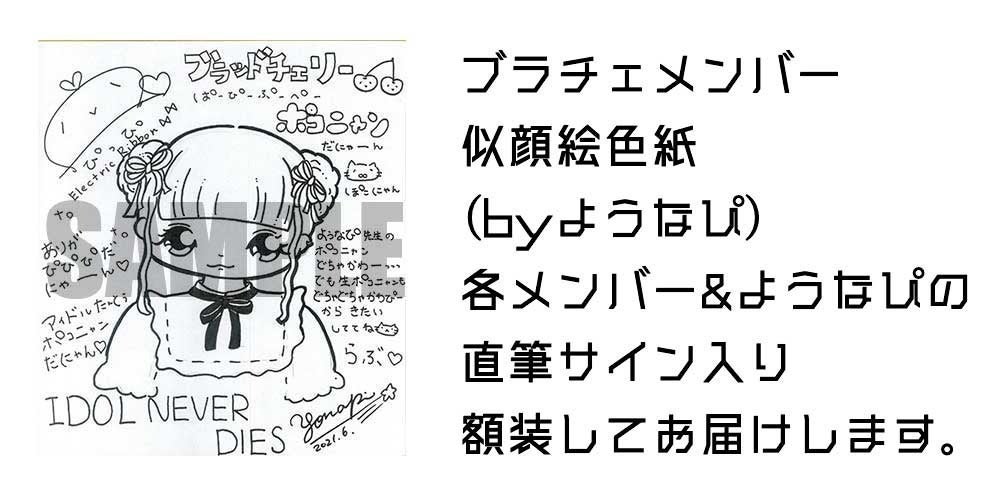 ブラッドチェリー
ぱーぴーぷーぺー
ポコニャン
だにゃーん
Electric Ribbon
SAMPLE
ようなぴ先生の
ポコニャン
どちゃかわー
でも生ポコニャンも
どちゃどちゃかわぴー
から きたい
しててね
ありが
ぴぴぴだ
にゃーん♡
アイドルたーてぅ
ポコニャン
だにゃん♡
らぶ♡
IDOL NEVER
DIES
Yonapi
2021.6.
ブラチェメンバー
似顔絵色紙
(byようなぴ)
各メンバー&ようなぴの
直筆サイン入り
額装してお届けします。